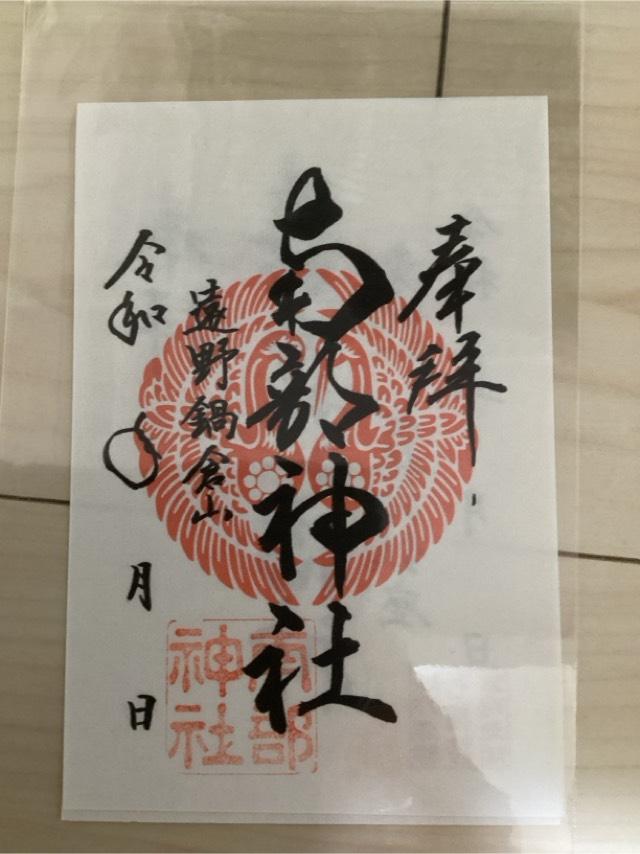 奉拝
南部神社
遠野鍋倉山
令和
〇
月
日
南部
神社